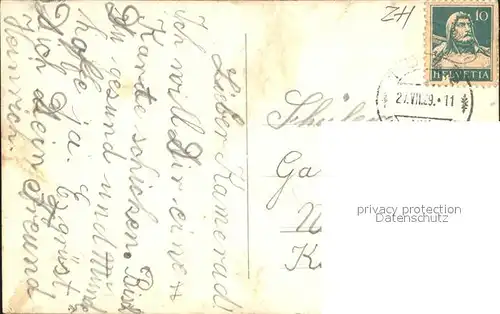 Lieber Kamerad!
Ich will Dir eine
Karte schicken. Bist
Du gesund und munter
hoffe ja. Es grüst
Dich Dein Freund
Heinrich.
ZH
10
HELVETIA
27.VII.29.-11
Schüler
Ga
U
K
privacy protection
www.ansichtskartenversand.com